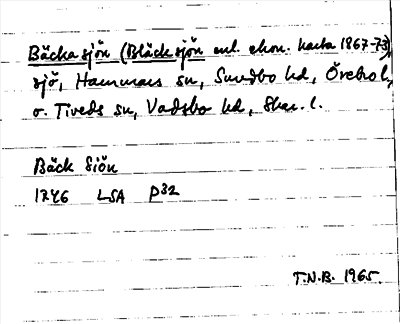 Bäckasjön (Bläcksjön enl. ekon. karta 1867-73),
sjö, Hammars sn, Sundbo hd, Örebro l,
o. Tiveds sn, Vadsbo hd, Skar. l.
Bäck Siön
1746 LSA P32
T.N.B. 1965.